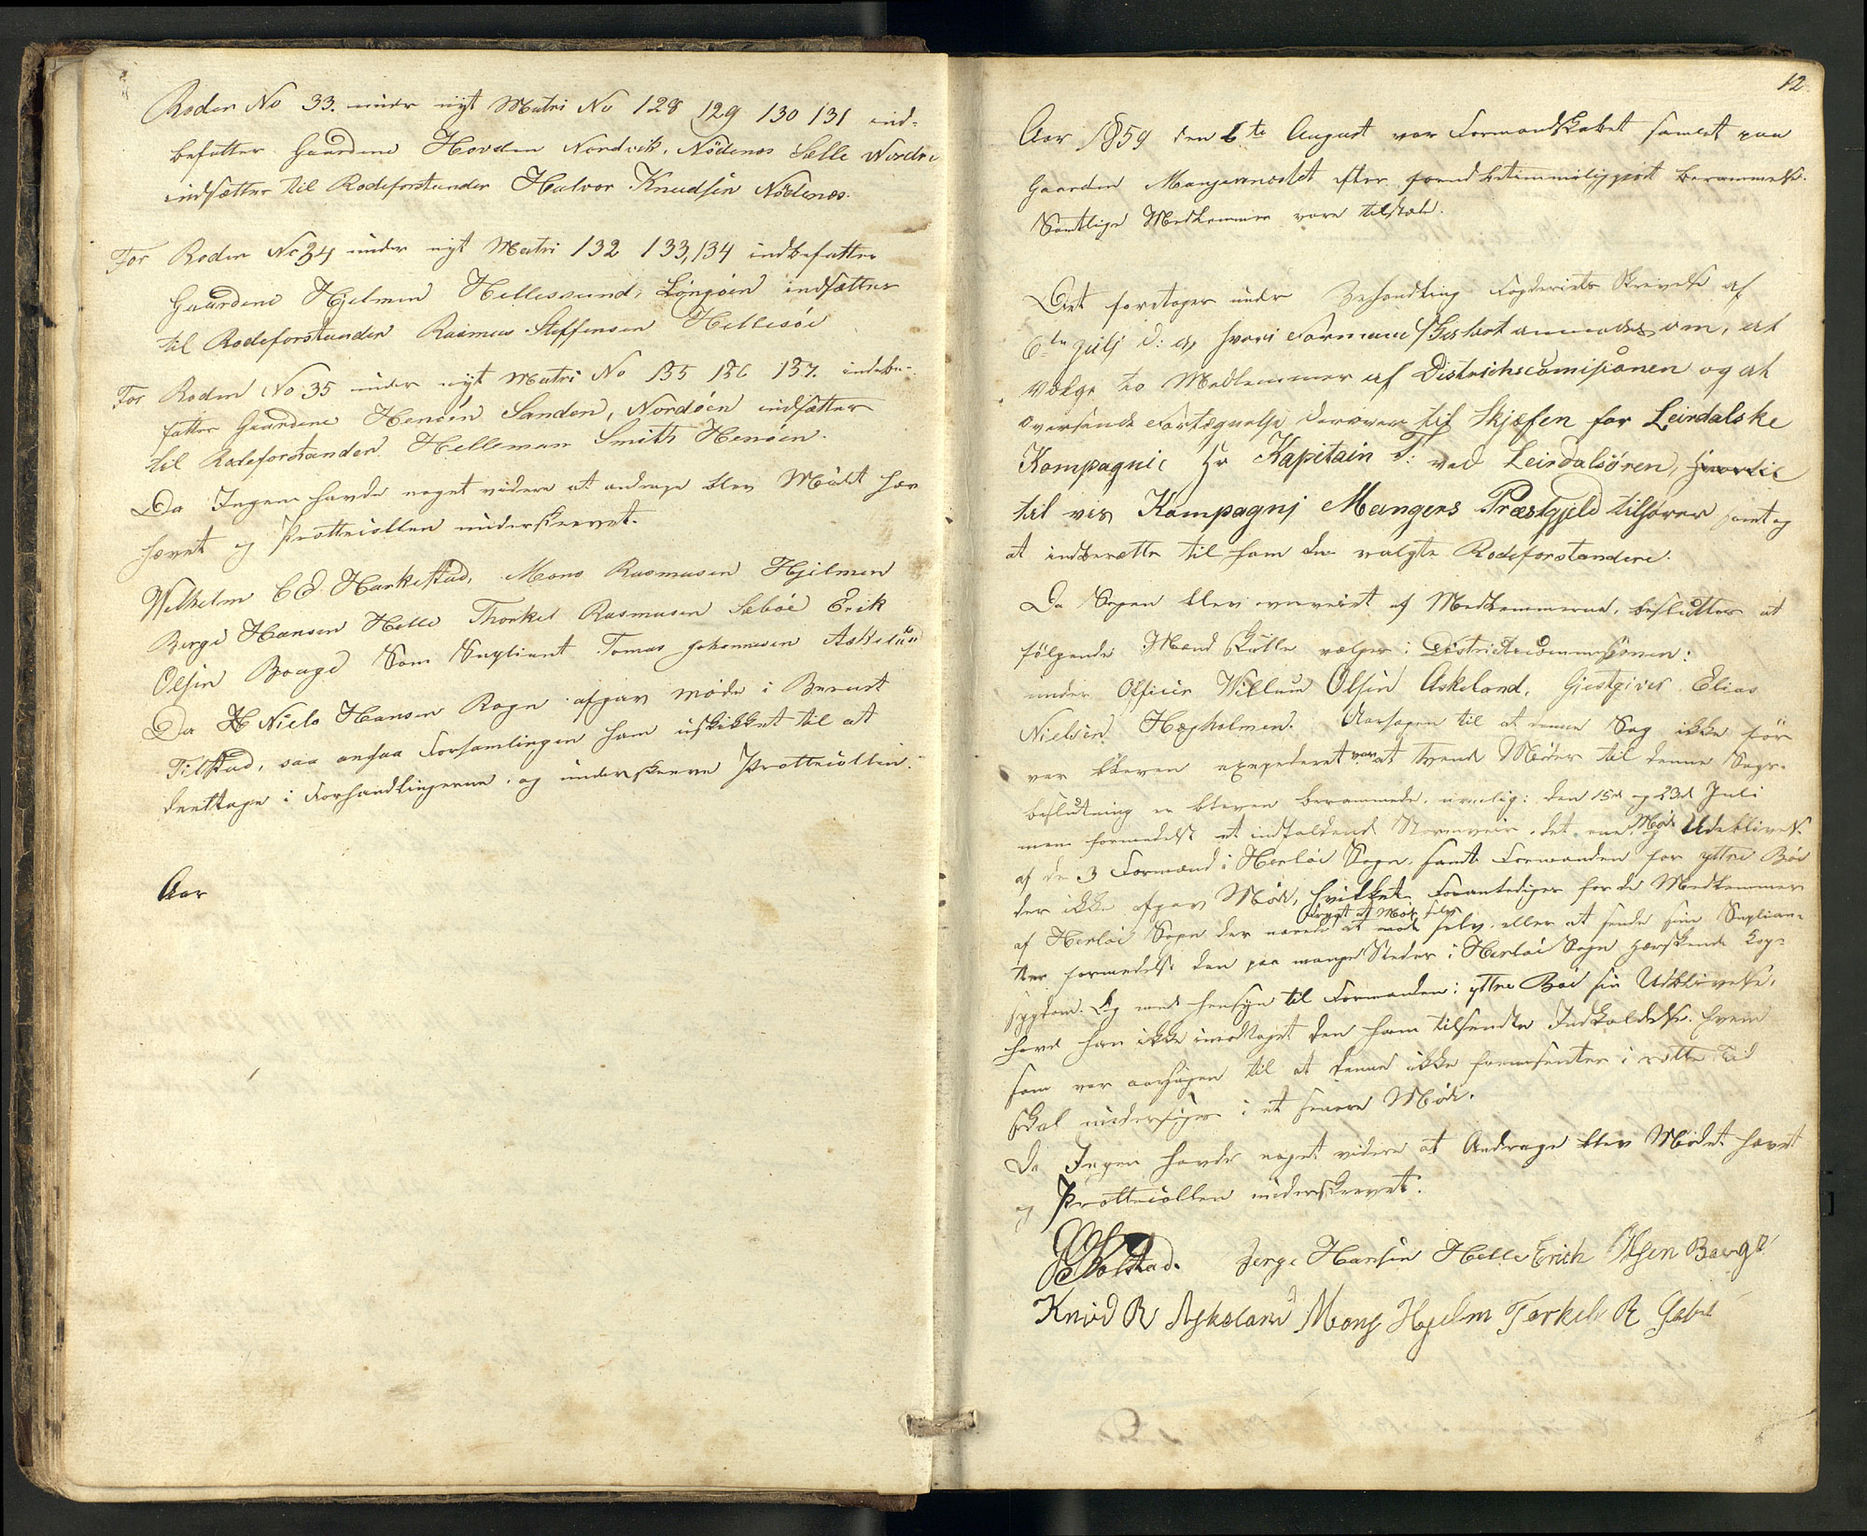 Roden No 33. under nyt Matri No 128 129 130 131 ind-
befatter Gaardene Hovden Nordvik, Nödenes Sælle Nordre
indsætter til Rodeforstander Halvor Knudsen Nödenes.
For Roden No 34 under nyt Matri 132 133, 134 indbefatter
Gaardene Hjelmen Hellessund, Lÿngöen indsættes
til Rodeforstander Rasmus Steffensen Hellesöe
For Roden No 35 under nyt Matri No 135 136 137. indebe-
fatter Gaardene Henöen Sanden, Nordöen indsætter
til Rodeforstander Helleman Smith Henöen.
Da Ingen havde noget videre at andrage blev Mödet hæ-
hævet og Prottecollen underskrevet.
Wilhelm C D Harkestad, Mons Rasmusen Hjelmen
Børge Hansen Helle Thorkel Rasmusen Sebøe Erik
Olsen Bouge Som Supliant Tomas Johannesen Askelund
Da Niels Hansen Rogn afgav møde i Beruset
Tilstad, saa ansaa Forsamlingen ham uskikket til at
deeltage i Forhandlingerne, og underskreve Prottecollen.
Aar
12.
Aar 1859 den 6te August var Formandskabet samlet paa
Gaarden Mangernæstet efter forud betimmeliggjort berammelse.
Samtlige Medlemmer vare tilstæde.
Det foretoges under Behandling Fogderiets Skrivelse af
6te Julj d: A, hvori Formandskabet anmodes om, at
vælge to Medlemmer af Districhscomisionen og at
oversende Fortegnelse derover til Skjæfen for Leirdalske
Kompagnie Hr Kapitain T: ved Leirdalsøren, hvortil
til vis Kompagnj Mangers Præstgjeld tilhører samt og
at indberætte til ham de valgte Rodeforstandere.
Da Sagen blev overveiet af Medlemmerne, besluttes at
følgende Mænd skulle vælges i Districtscommisjonen:
under Officer Willum Olsen Askeland, Gjestgiver Elias
Nielsen Høgholmen. Aarsagen til at denne Sag ikke før
var bleven expederet var at tvende Møder til denne Sags-
beslutning er bleven berammede, nemlig: den 15de og 23de Juli
men formedelst et indfaldend Stormveir, det ene Møde Udeblivelse
af de 3 Formænd i Herløe Sogn, samt Formanden for Yttre Bøe
der ikke afgav Møde, hvilket Foranlediges for de Medlemmer
af Herløe Sogn der nærede frygt at Møde selv, eller at sende sine Suplian-
ter formedelst den paa mange Steder i Herløe Sogn herskende Kop-
sygdom. Og med hensyn til Formanden i yttre Bøe sin Udeblivelse,
havde han ikke imodtaget den ham tilsendte Indkaldelse. hvem
som var aarsagen til at denne ikke fremsentes i rette Tid
skal undersøges i et senere Møde.
Da Ingen havde noget videre at Andrage blev Mødet hævet
og Prottecollen underskrevet.
Børge Hansen Helle Erich Olsen Bouge
Knud R Askeland Mons Hjelm Torkel R Sebø